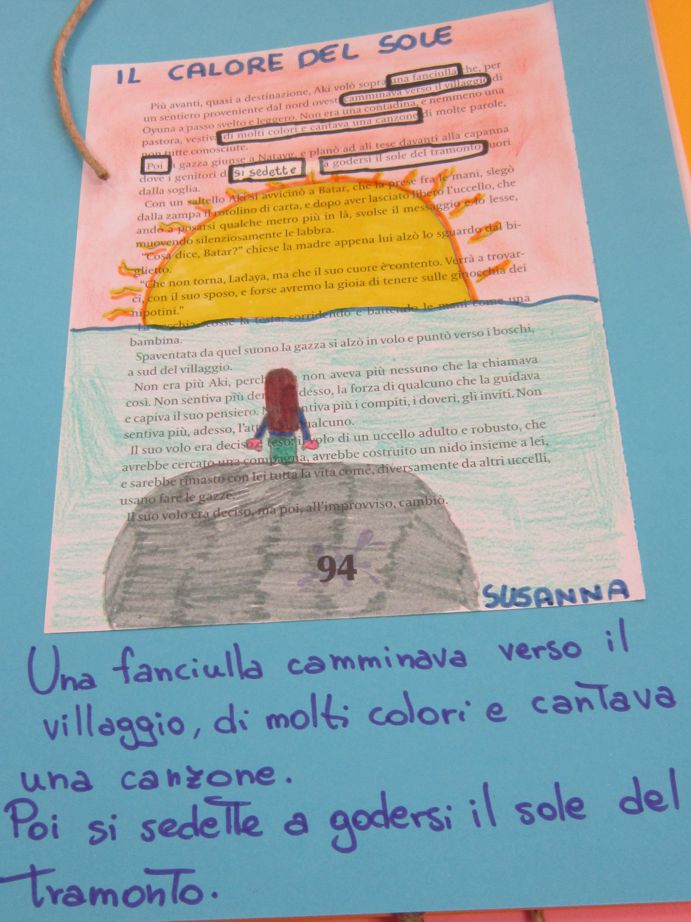 IL CALORE DEL SOLE
Più avanti, quasi a destinazione, Aki volò sopra una fanciulla che, per
un sentiero proveniente dal nord ovest camminava verso il villaggio di
Oyuna a passo svelto e leggero. Non era una contadina, e nemmeno una
pastora, vestiva di molti colori e cantava una canzone di molte parole,
non tutte conosciute.
Poi la gazza giunse a Natayg, e planò ad ali tese davanti alla capanna
dove i genitori di si sedette a godersi il sole del tramonto fuori
dalla soglia.
Con un saltello Aki si avvicinò a Batar, che la prese fra le mani, slegò
dalla zampa il rotolino di carta, e dopo aver lasciato libero l'uccello, che
andò a posarsi qualche metro più in là, svolse il messaggio e lo lesse,
muovendo silenziosamente le labbra.
"Cosa dice, Batar?" chiese la madre appena lui alzò lo sguardo dal bi-
glietto.
"Che non torna, Ladaya, ma che il suo cuore è contento. Verrà a trovar-
ci, con il suo sposo, e forse avremo la gioia di tenere sulle ginocchia dei
nipotini."
La vecchia scosse la testa, sorridendo e battendo le mani come una
bambina.
Spaventata da quel suono la gazza si alzò in volo e puntò verso i boschi,
a sud del villaggio.
Non era più Aki, perché non aveva più nessuno che la chiamava
così. Non sentiva più dentro, adesso, la forza di qualcuno che la guidava
e capiva il suo pensiero. Non sentiva più i compiti, i doveri, gli inviti. Non
sentiva più, adesso, qualcuno.
Il suo volo era deciso, teso: il volo di un uccello adulto e robusto, che
avrebbe cercato una compagna, avrebbe costruito un nido insieme a lei,
e sarebbe rimasto con lei tutta la vita come, diversamente da altri uccelli,
usano fare le gazze.
Il suo volo era deciso, ma poi, all'improvviso, cambiò.
94
SUSANNA
Una fanciulla camminava verso il
villaggio, di molti colori e cantava
una canzone.
Poi si sedette a godersi il sole del
tramonto.